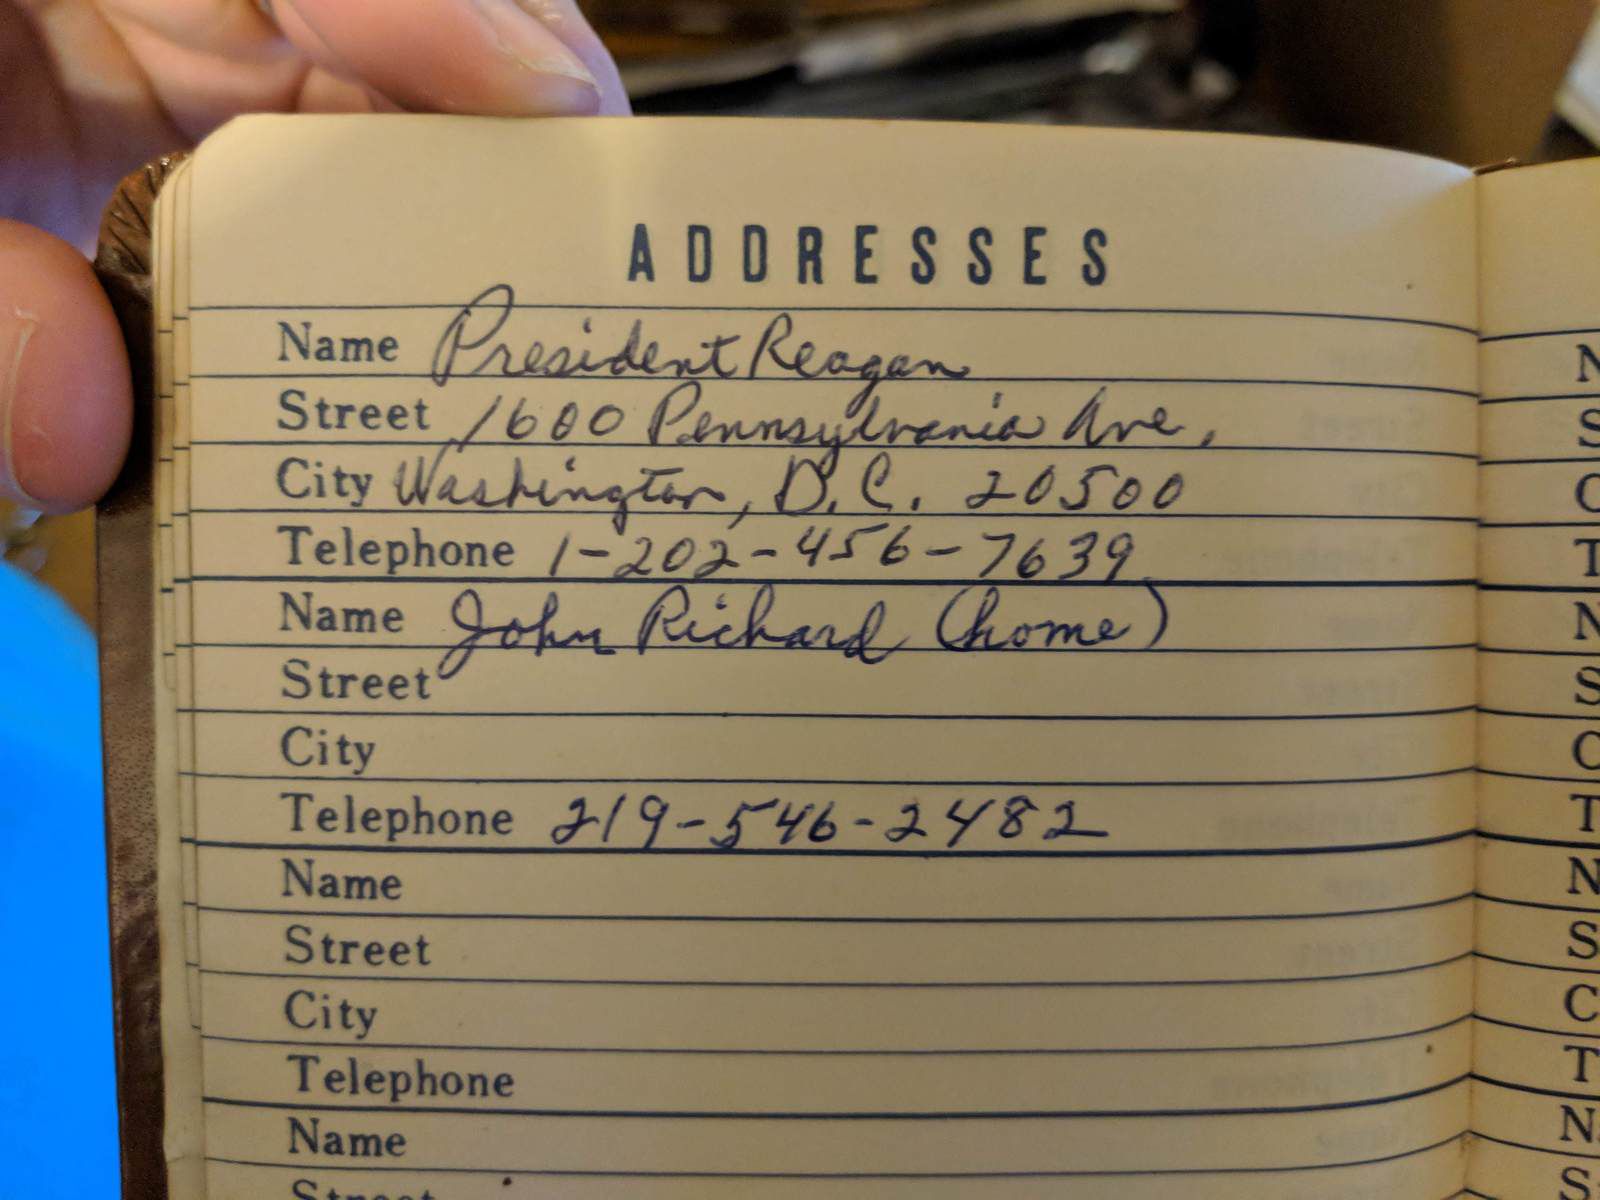 ADDRESSES
Name President Reagan
Street 1600 Pennsylvania Ave,
City Washington, D.C. 20500
Telephone 1-202-456-7639
Name John Richard (home)
Street
City
Telephone 219-546-2482
Name
Street
City
Telephone
Name
Street
N
S
C
T
N
S
C
T
N
S
C
T
N
S